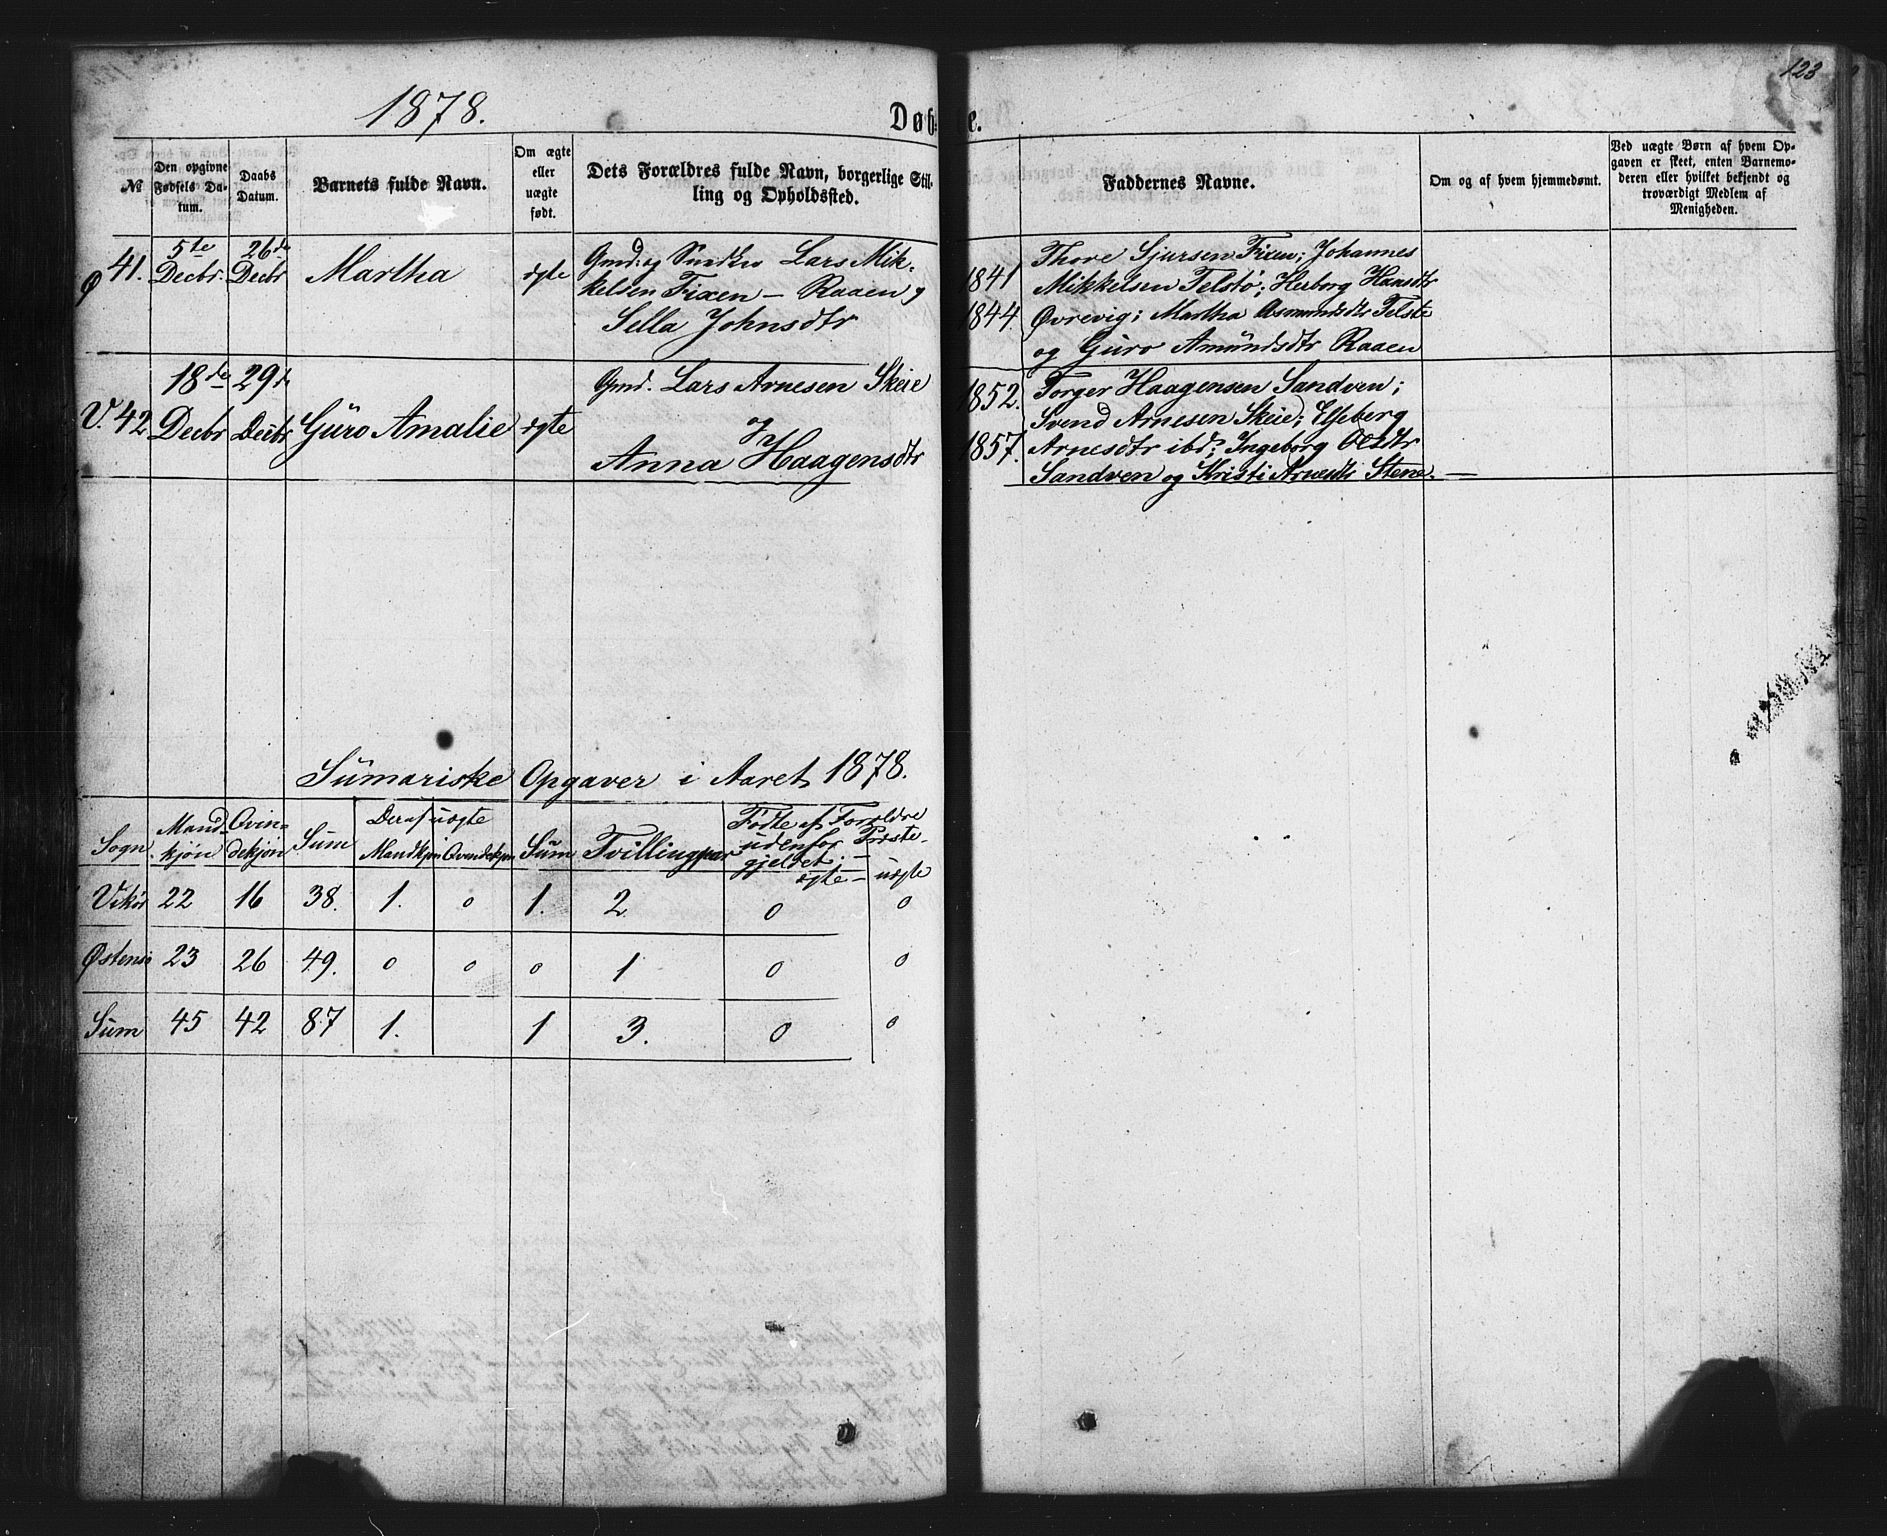 123
1878.
Døbte.
№
Den opgivne Fødsels Datum.
Daabs Datum.
Barnets fulde Navn.
Om ægte eller uægte født.
Dets Forældres fulde Navn, borgerlige Stilling og Opholdssted.
Faddernes Navne.
Om og af hvem hjemmedømt.
Ved uægte Børn af hvem Opgaven er skeet, enten Barnemoderen eller hvilket bekjendt og troværdigt Medlem af Menigheden.
Ø 41.
5te Decbr.
26de Decbr
Martha
ægte
Gmd. og Snedker Lars Mik-
kelsen Fixen — Raaen og
Sella Johnsdtr
1841
1844.
Thore Sjursen Fixen; Johannes
Mikkelsen Telstø; Herborg Hansdtr
Øvrevig; Martha Asmundsdtr Telstø
og Guro Amundsdtr Raaen
V. 42
18de Decbr
29de Decbr
Guro Amalie
ægte
Gmd. Lars Arnesen Skeie
og
Anna Haagensdtr
1852.
1857.
Torger Haagensen Sandven;
Svend Arnesen Skeie; Elseberg
Arnesdtr ibd; Ingeborg Olsdtr
Sandven og Kristi Arnesdtr Stene.
Sumariske Opgaver i Aaret 1878.
Sogn
Mandkjøn
Qvindekjøn
Sum
Deraf uægte
Mandkjøn
Qvindekjøn
Sum
Tvillingpar
Fødte af Forældre
udenfor Præste-
gjeldet.
ægte — uægte
Vikør 22 16 38. 1. 0 1. 2 0 0
Østensø 23 26 49. 0 0 0 1 0 0
Sum 45 42 87 1. 1 3. 0 0